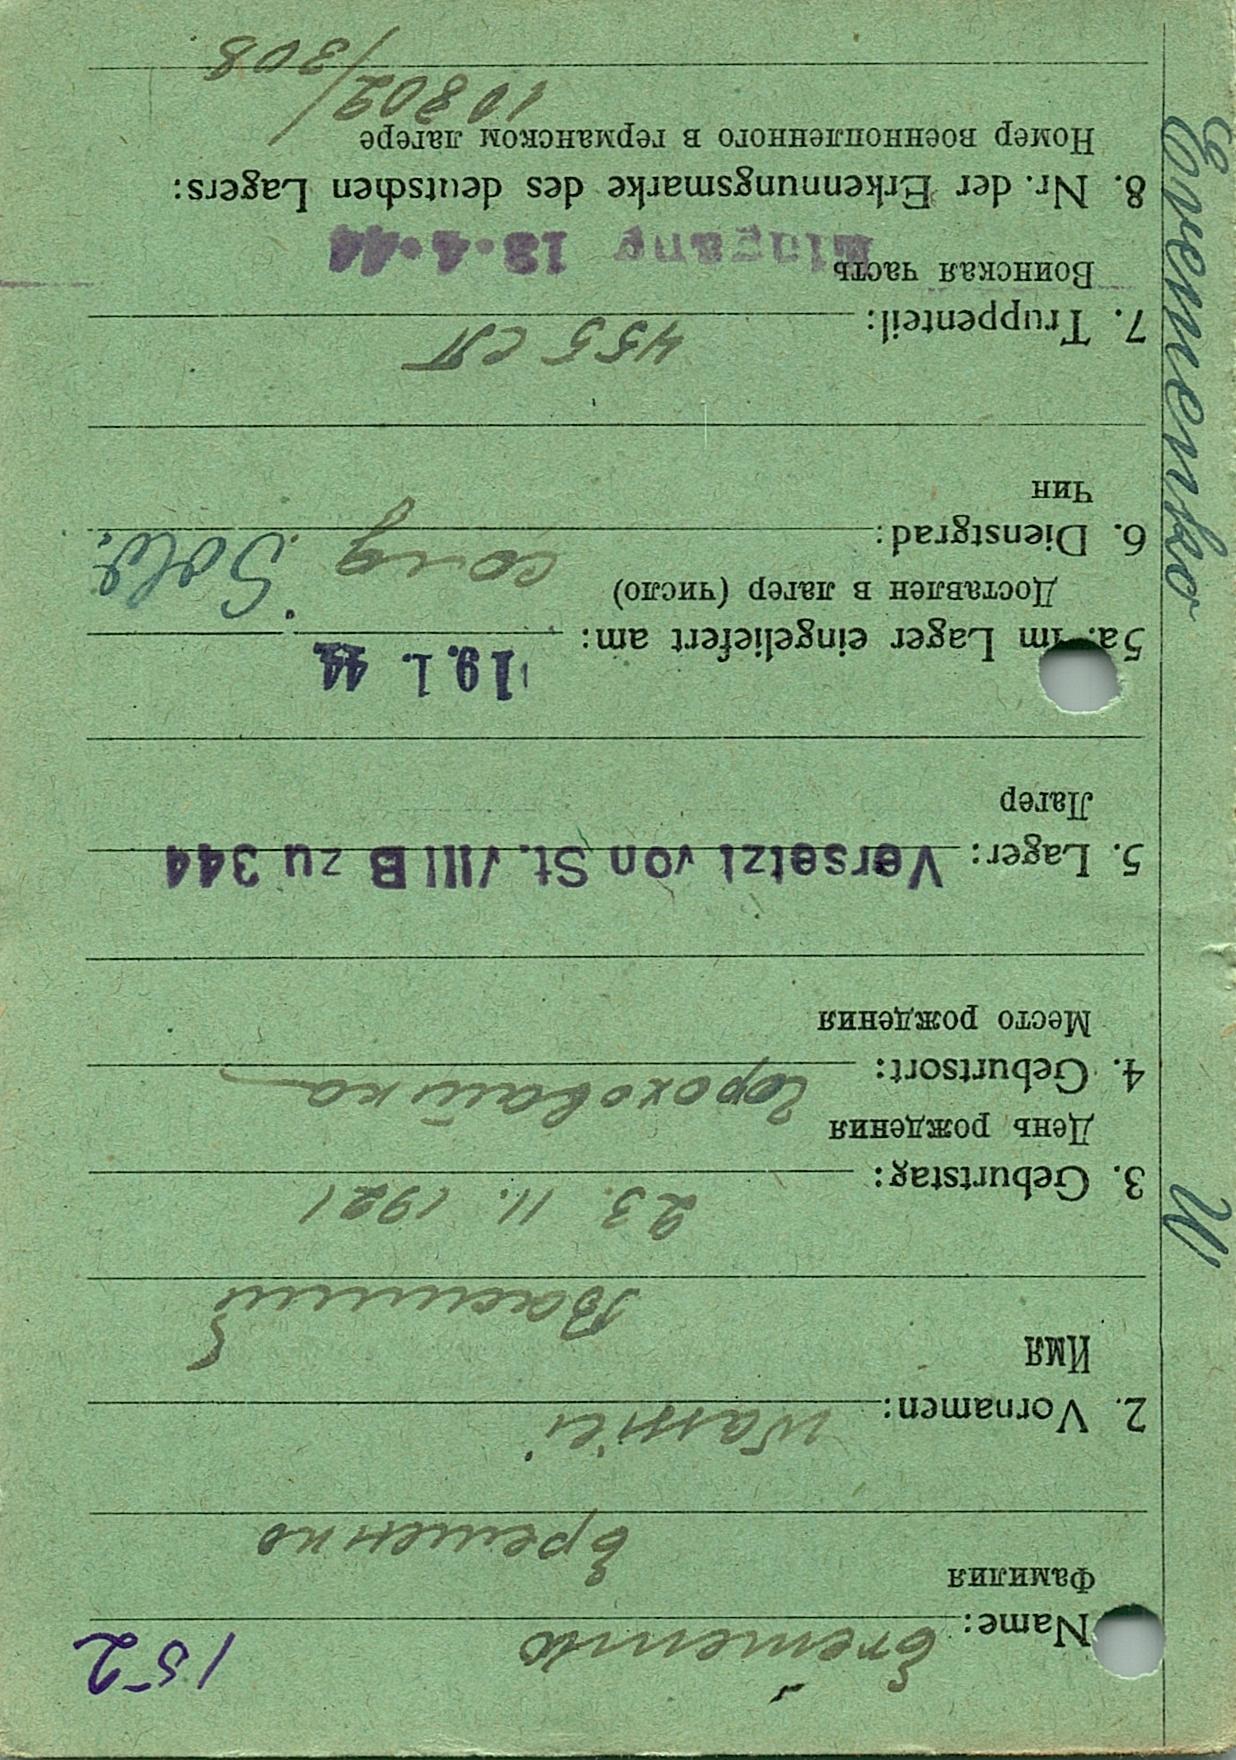 152
Name: Eremenko
Фамилия
Еременко
2. Vornamen: Wassili
Имя
Василий
3. Geburtstag: 23. 11. 1921
День рождения
4. Geburtsort: Гороховатка
Место рождения
5. Lager: Versetzt von St. VIII B zu 344
Лагер
5a. im Lager eingeliefert am: 19. 1. 44
Доставлен в лагер (число)
6. Dienstgrad: солд Sold.
Чин
7. Truppenteil: 455 сп
Воинская часть
Eingang 18.4.44
8. Nr. der Erkennungsmarke des deutschen Lagers:
Номер военнопленного в германском лагере
10802/308
Eremenko W